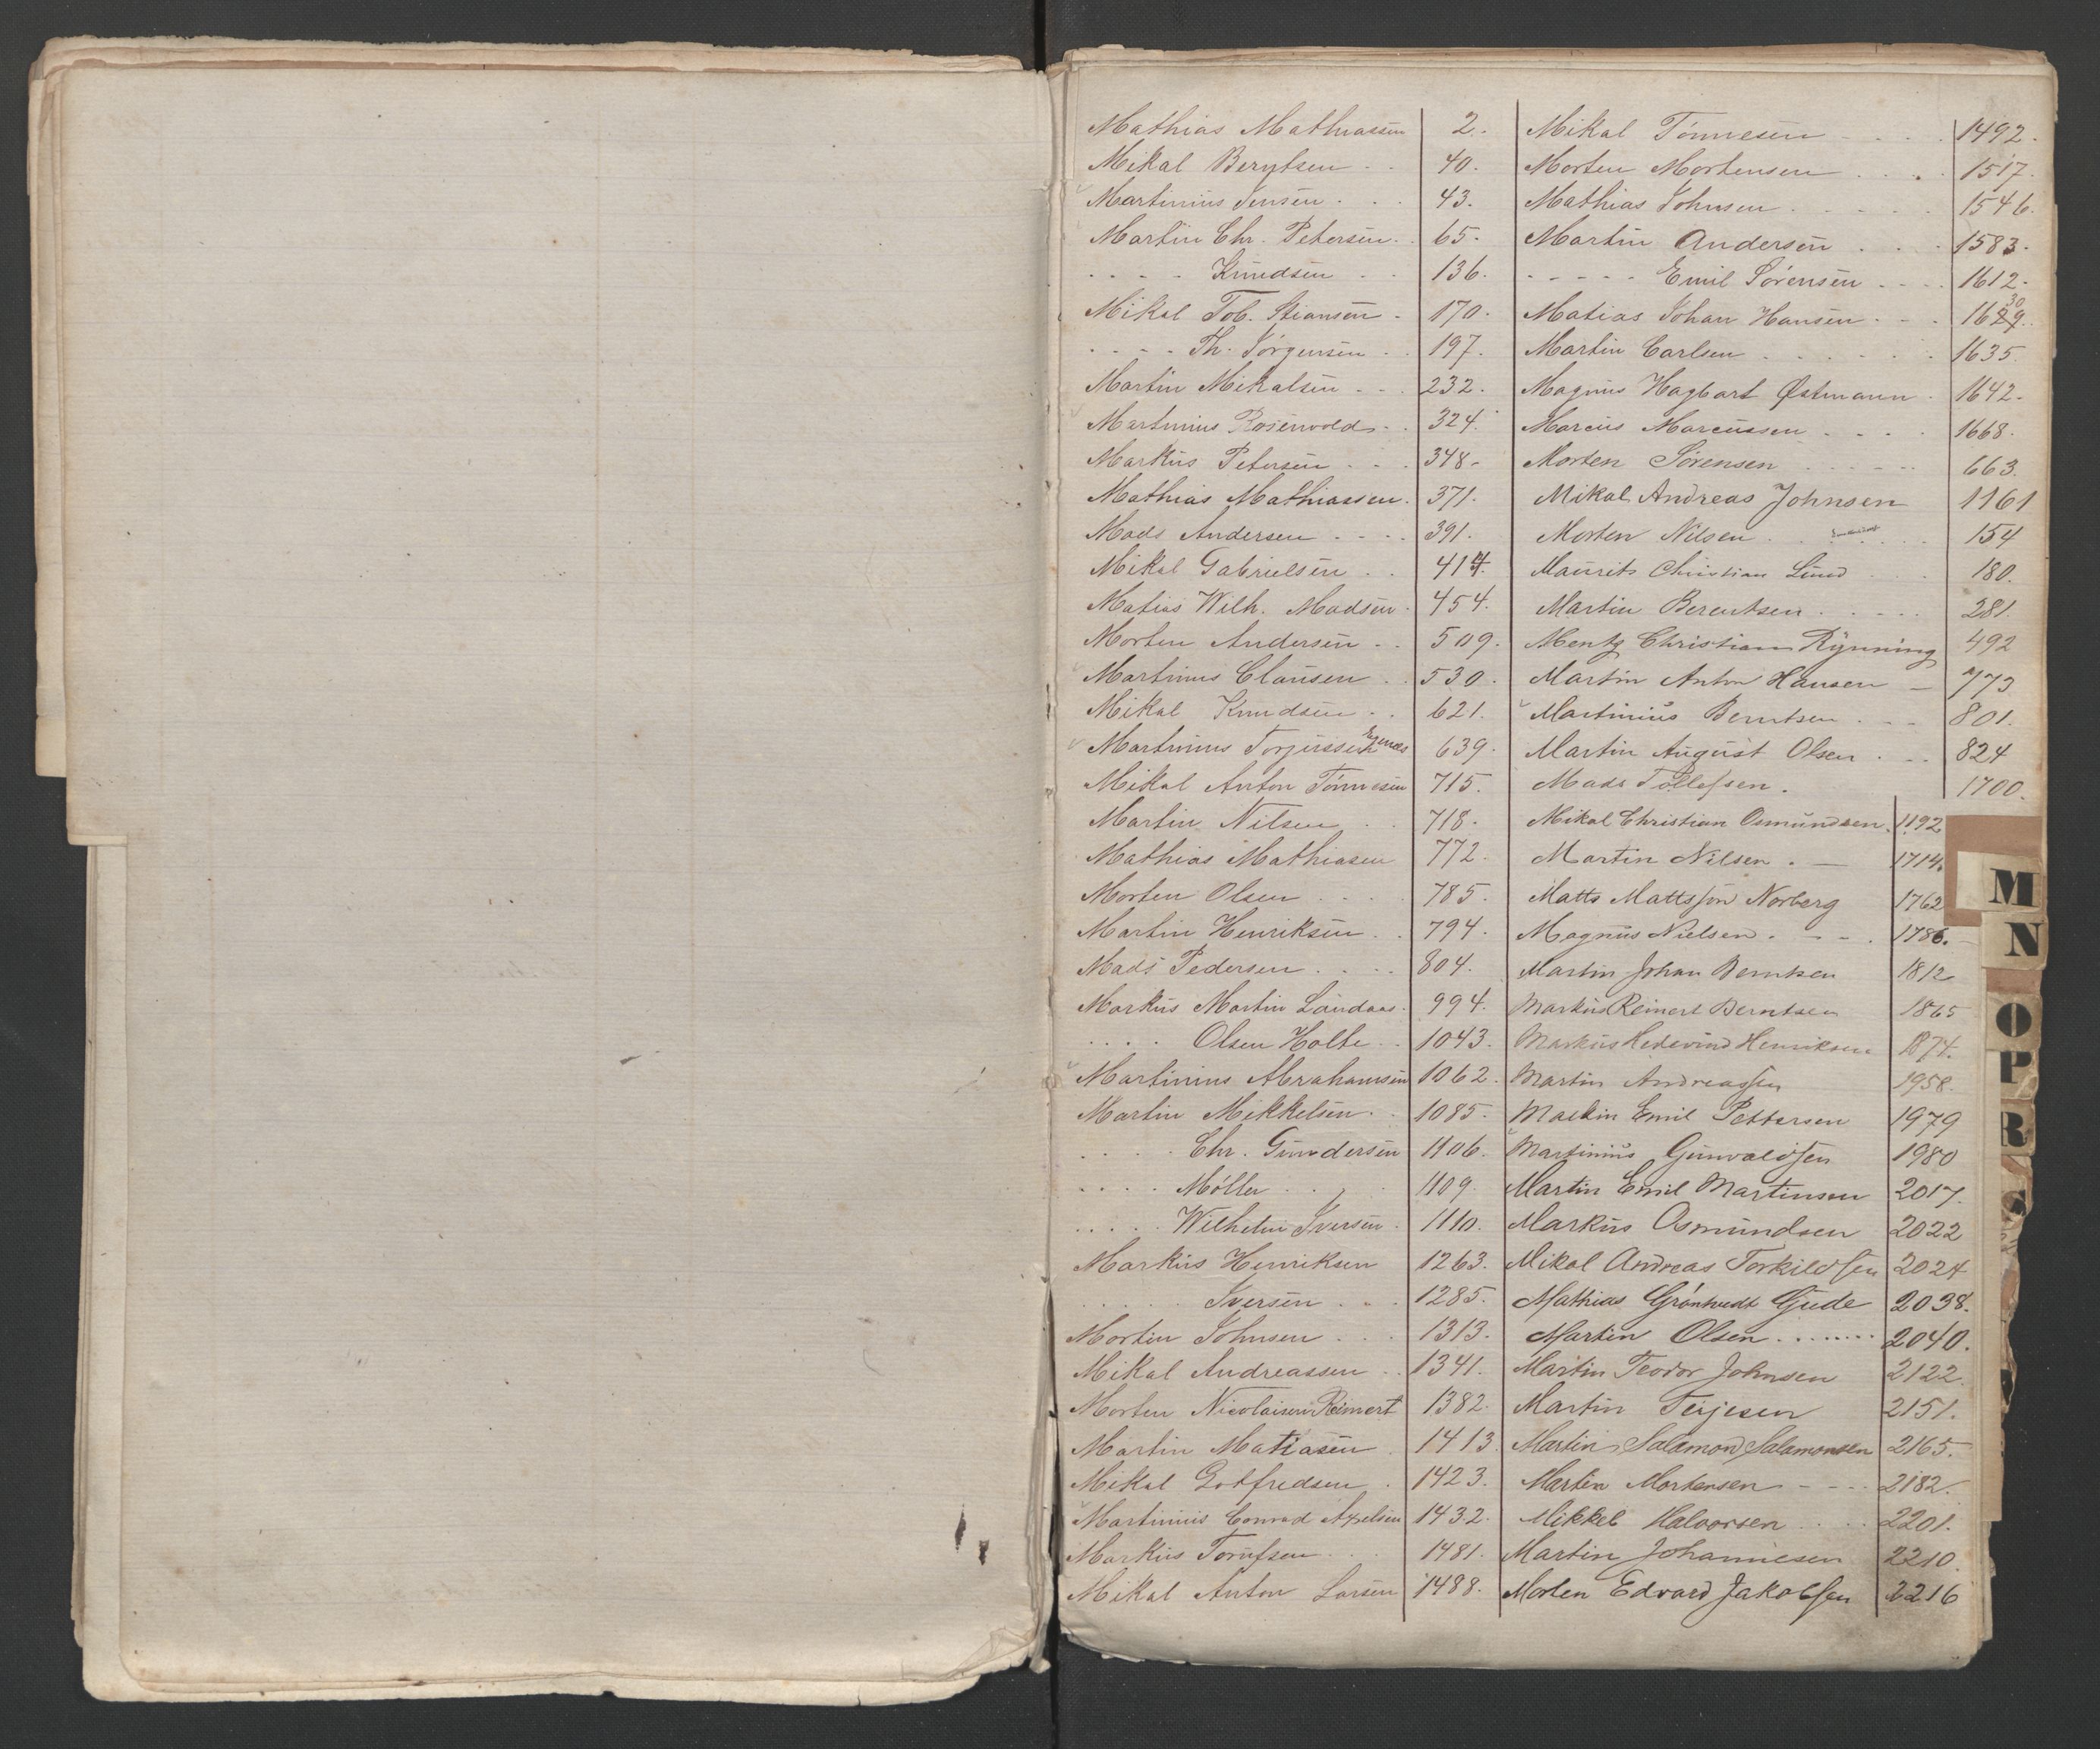 Mathias Mathiassen 2.
Mikal Berntsen . . 40.
Martinius Jensen . . . 43.
Martin Chr. Petersen . 65.
. . . . Knudsen . . 136.
Mikal Tob. Stiansen . 170.
. . . . Th. Jørgensen . . 197.
Martin Mikalsen . . . 232.
Martinius Rosenvold . . 324.
Markus Petersen . . . 348.
Mathias Mathiassen . 371.
Mads Andersen . . . . 391.
Mikal Gabrielsen . . 414.
Matias Wilh. Madsen . 454.
Morten Andersen . . 509.
Martinius Clausen . . 530.
Mikal Knudsen . . 621.
Martinius Torjussen 639.
Mikal Anton Tönnesen 715.
Martin Nilsen . . 718.
Mathias Mathiasen 772.
Morten Olsen . . . . 785.
Martin Henriksen . . 794.
Mads Pedersen . . . . 804.
Markus Martin Landaas . 994.
. . . . Olsen Holte . . 1043.
Martinius Abrahamsen 1062.
Martin Mikkelsen . . 1085.
. . . . Chr. Gundersen 1106.
. . . . Möller . . . 1109.
. . . . Wilhelm Iversen . 1110.
Markus Henriksen 1263.
. . . . . Iversen . . . 1285.
Morten Johnsen . . . 1313.
Mikal Andreassen . . 1341.
Morten Nicolaisen Reinert 1382.
Martin Matiasen . 1413.
Mikal Gotfredsen . 1423.
Martinius Conrad Axelsen 1432.
Markus Torufsen . . . 1481.
Mikal Anton Larsen 1488.
Mikal Tönnesen . . . . 1492.
Morten Mortensen . . . . 1517.
Mathias Johnsen . . . . . 1546.
Martin Andersen . . . 1583.
. . . . . Emil Sörensen . . . . 1612.
Matias Johan Hansen . . . 1629. 30
Martin Carlsen . . . . . . 1635.
Magnus Hagbart Østmann . 1642.
Marcus Marcussen . . . . 1668.
Morten Sörensen . . . . . . 663.
Mikal Andreas Johnsen 1161
Morten Nilsen . . . . . . 154
Maurits Christian Lund . . . 180.
Martin Berentsen . . . . . 281.
Mentz Christian Rynning 492
Martin Anton Hansen 773
Martinius Berntsen . . . 801.
Martin August Olsen . . . 824
Mads Tollefsen . 1700.
Mikal Christian Osmundsen . 1192
Martin Nilsen . 1714.
Matts Mattsson Norberg 1762
Magnus Nielsen . . . . 1786.
Martin Johan Berntsen 1812
Markus Reinert Berntsen 1865
Markus Hedevind Henriksen 1874.
Martin Andreassen 1958.
Martin Emil Pettersen 1979
Martinius Gunvaldsen 1980
Martin Emil Martinsen 2017.
Markus Osmundsen 2022
Mikal Andreas Torkildsen 2024
Mathias Gröntvedt Gude 2038.
Martin Olsen . . . . . . . 2040.
Martin Teodor Johnsen 2122.
Martin Terjesen 2151.
Martin Salamon Salamonsen 2165.
Martin Mortensen . . . . 2182.
Mikkel Halvorsen . . . . 2201.
Martin Johannesen 2210.
Morten Edvard Jakobsen 2216
M
N
O
P
R
S